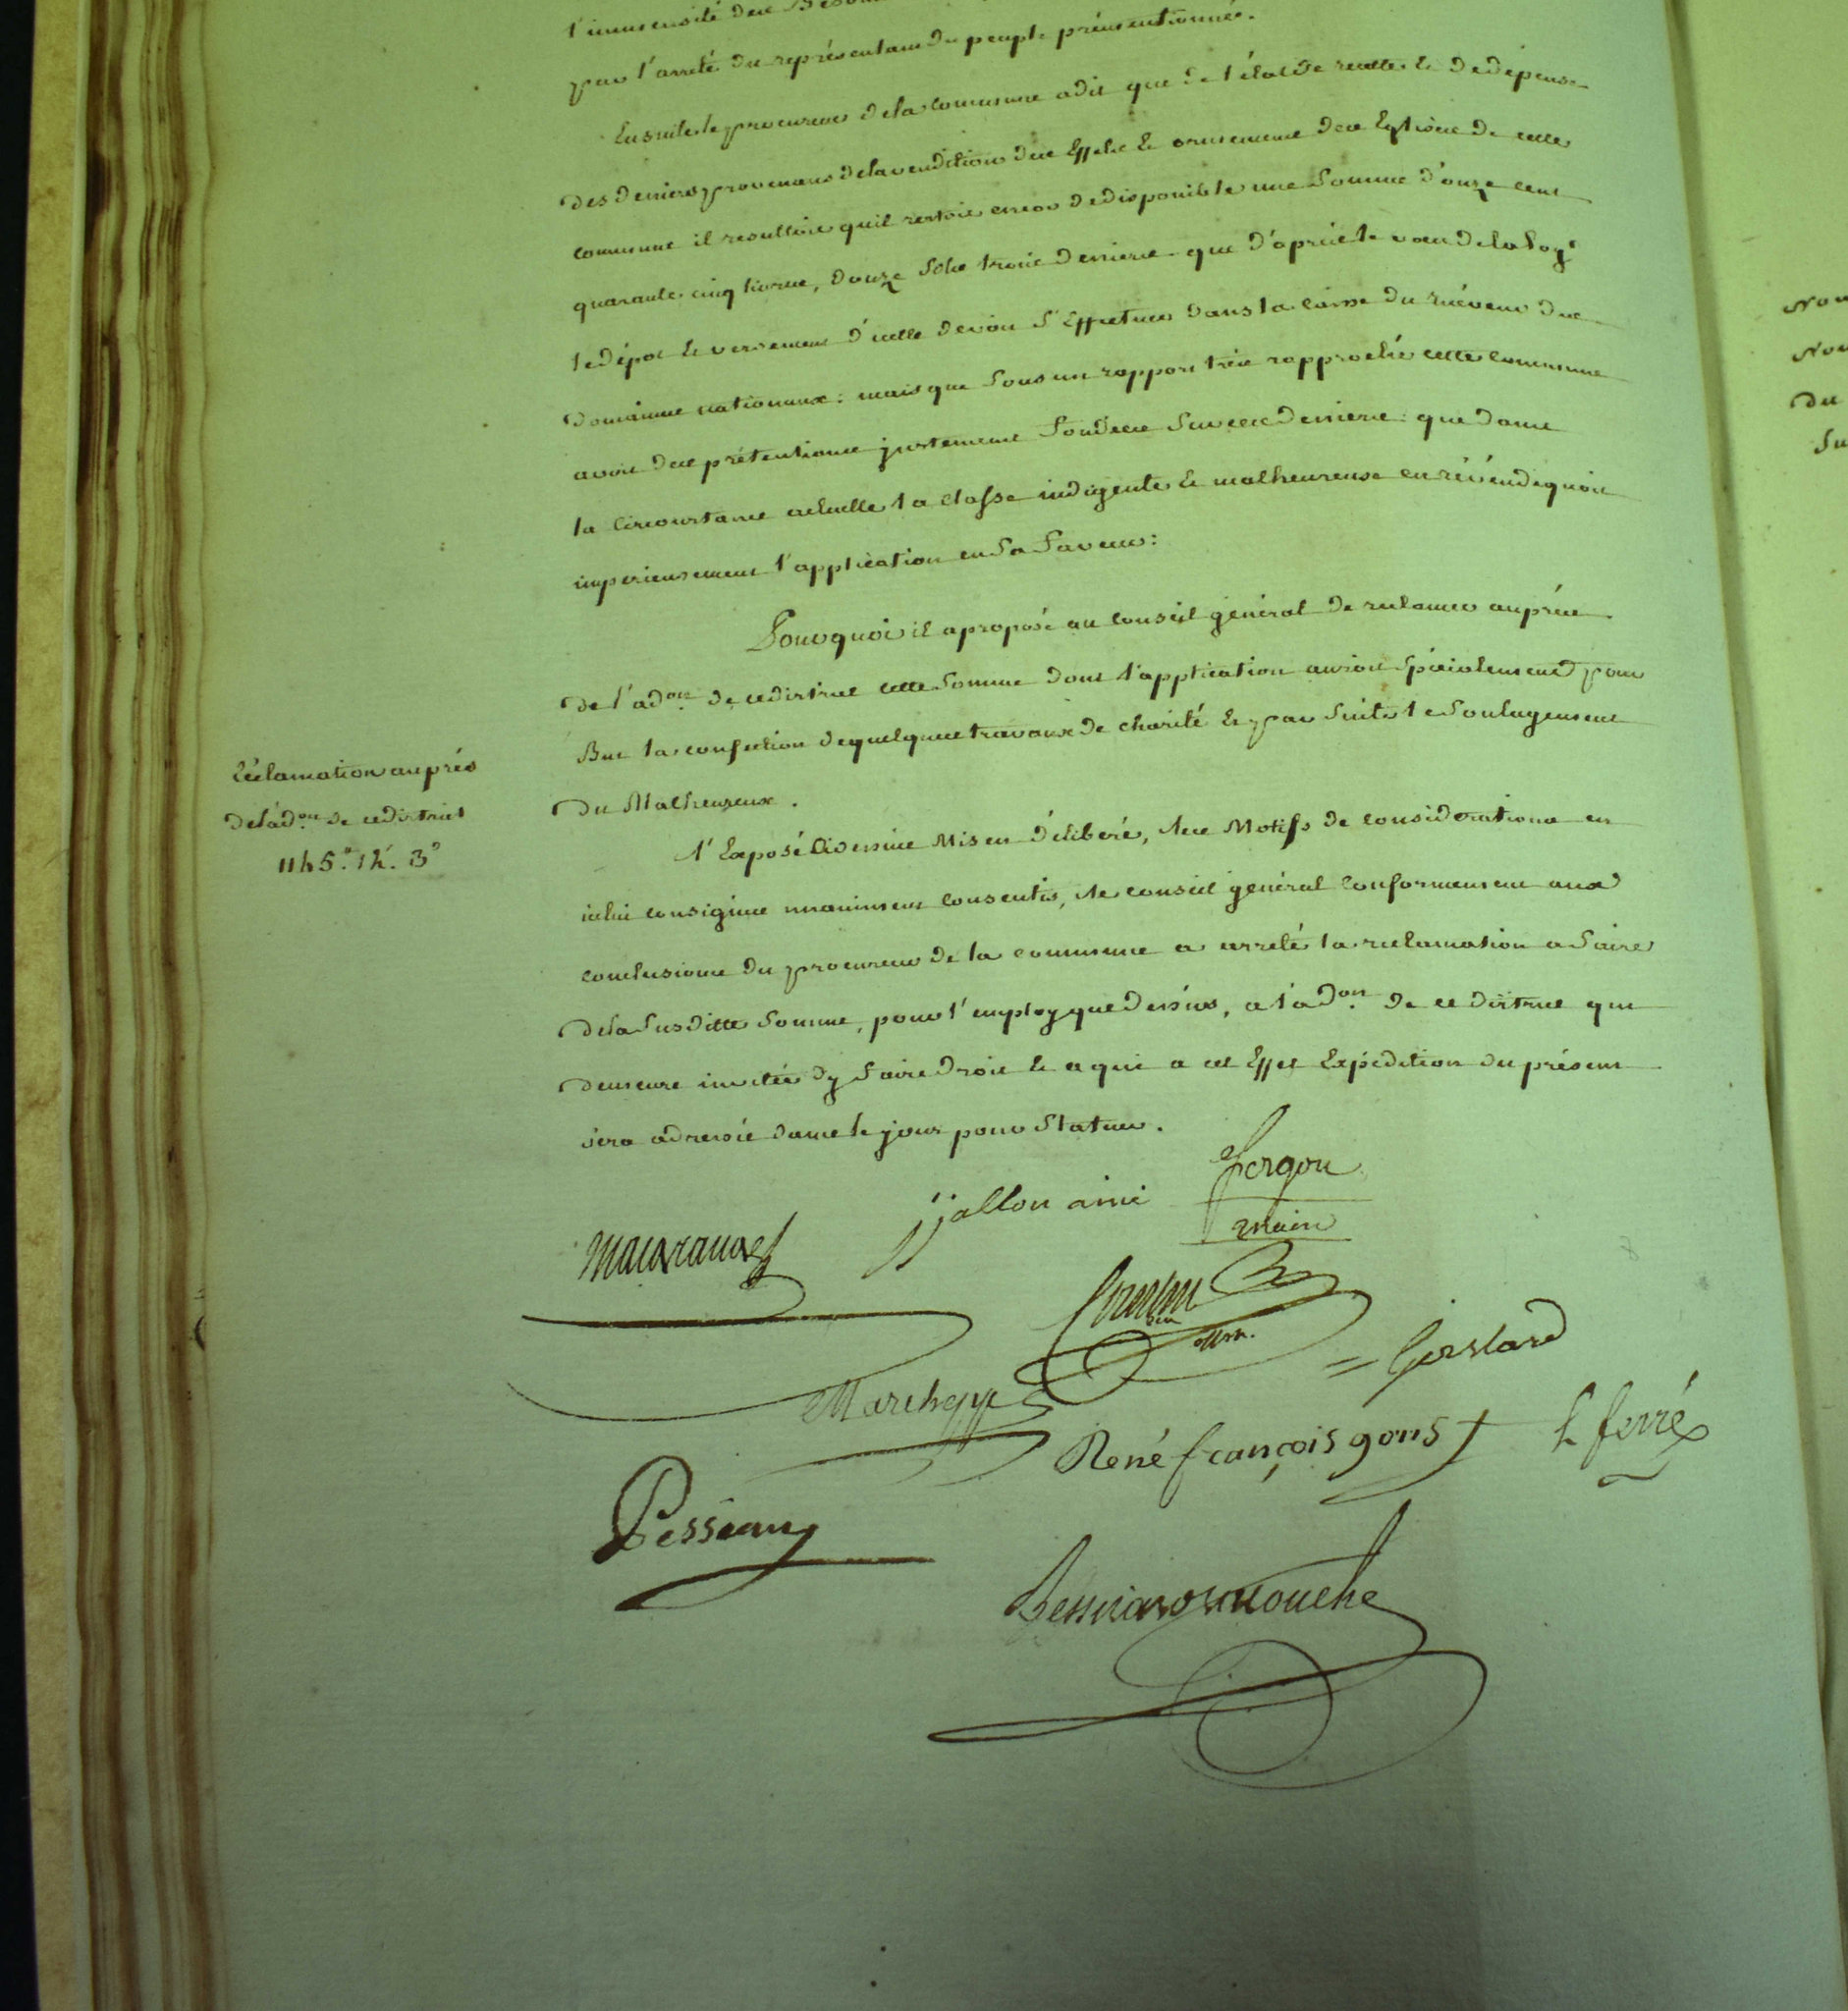 l'immensité des Besoins
par l'arrêté du représentant du peuple prémentionné.
Ensuite le procureur de la commune a dit que de l'état de recette & de dépense
des deniers provenans de la vendition des Effets & ornements des Eglises de cette
commune il resultoit qu'il restoit encor de disponible une Somme d'onze cent
quarante cinq livres, douze Sols trois deniers que d'après le vœu de la Loy
le dépot & versement d'icelle devoit S'Effectuer dans la caisse du riéveur des
domaines nationaux : mais que Sous un rapport très rapproché cette commune
avoit des prétentions justement fondées Sur ces deniers : que dans
la Circonstance actuelle la classe indigente & malheureuse en révéndiquoit
imperieusement l'application en Sa faveur :
Pourquoi il a proposé au Conseil général de reclamer auprès
de l'ad.on de ce district cette Somme dont l'application auroit Spécialement pour
But la confection de quelques travaux de charité & par Suite le Soulagement
du Malheureux.
Réclamation auprès
de l'ad.on de ce district
1145.# 12.s 3.d
L'Exposé Cidessus Mis en délibéré, les Motifs de considerations en
icelui consignés unanimement consentis, le conseil général Conformement aux
conclusions du procureur de la commune a arrêté la reclamation a faire
de la Susditte Somme, pour l'employ que dessus, a l'ad.on de ce district qui
demeure invitée d'y faire droit & a qui a cet Effet Expédition du présent
sera adressée dans le jour pour Statuer.
jallon ainé
Gorgon
maire
Marchegay
René françois gons
h ferré
Pesseau